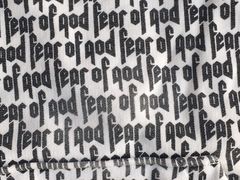 fear of god fear of god
fear of god fear of god
of god fear of god fear
god fear of god fear of
fear of god fear of god
fear of god fear of god